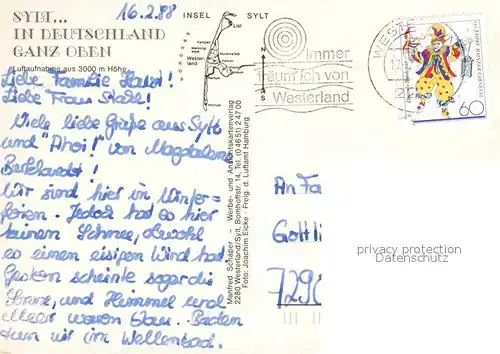 16.2.88
SYLT...
IN DEUTSCHLAND
GANZ OBEN
Luftaufnahme aus 3000 m Höhe
Liebe Familie
Liebe Frau
Viele liebe Grüße aus Sylt
und "Ahoi!" von Magdalena
Burkhardt!
Wir sind hier in Winter=
ferien. Jedoch hat es hier
keinen Schnee, obwohl
es einen eisigen Wind hat
Gestern scheinte sogar die
Sonne, und Himmel und
Meer waren blau. Baden
tun wir im Wellenbad.
INSEL SYLT
NORDSEE
List
Kampen
Westerland
N
S
Manfred Schaper - Werbe- und Ansichtskartenverlag
2280 Westerland/Sylt, Bomhoffstr. 14, Tel. (0 46 51) 2 47 00
Foto: Joachim Eicke - Freig. d. Luftamt Hamburg
Immer
träum ich von
Westerland
WEST
60
An Fa
Gottli
729
privacy protection
Datenschutz